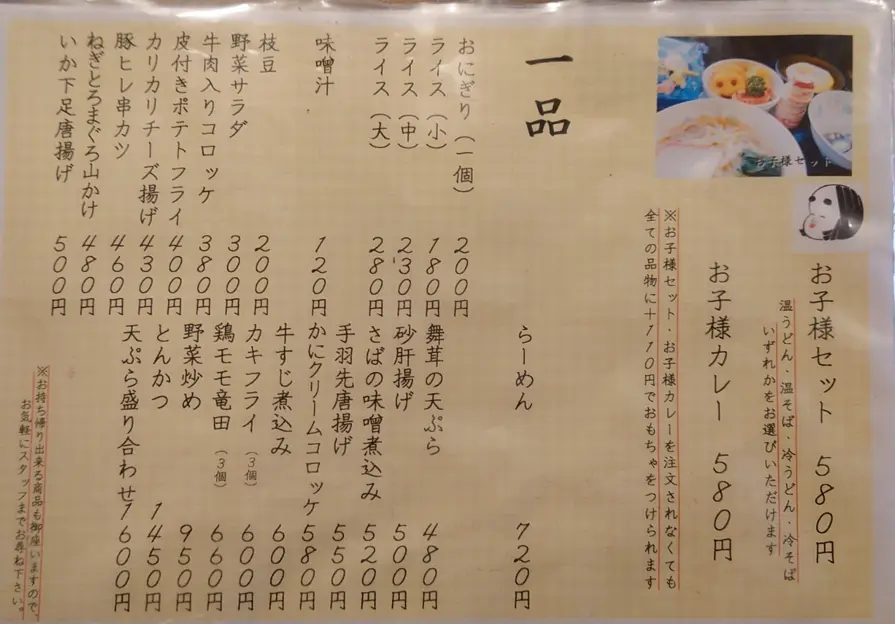 お子様セット
お子様セット 580円
温うどん・温そば・冷うどん・冷そば
いずれかをお選びいただけます
お子様カレー 580円
※お子様セット・お子様カレーを注文されなくても
全ての品物に＋110円でおもちゃをつけられます
一品
らーめん 720円
おにぎり（一個） 200円
ライス（小） 180円
ライス（中） 230円
ライス（大） 280円
味噌汁 120円
枝豆 200円
野菜サラダ 300円
牛肉入りコロッケ 380円
皮付きポテトフライ 400円
カリカリチーズ揚げ 430円
豚ヒレ串カツ 460円
ねぎとろまぐろ山かけ 480円
いか下足唐揚げ 500円
舞茸の天ぷら 480円
砂肝揚げ 500円
さばの味噌煮込み 520円
手羽先唐揚げ 550円
かにクリームコロッケ 580円
牛すじ煮込み 600円
カキフライ（3個） 600円
鶏モモ竜田（3個） 660円
野菜炒め 950円
とんかつ 1450円
天ぷら盛り合わせ 1600円
※お持ち帰り出来る商品も御座いますので、
お気軽にスタッフまでお尋ね下さい。